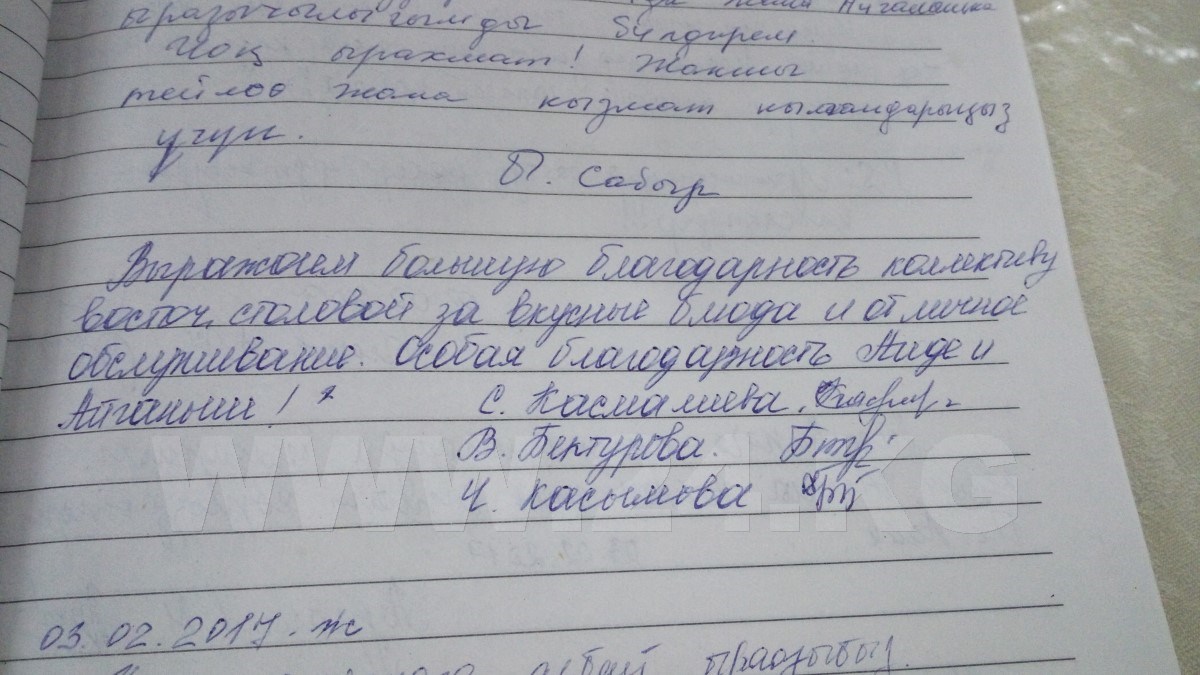 жана Айгаланшка
ыраазычылыгымды билдирем.
Чоң ырахмат! Жакшы
тейлөө жана кызмат кылгандарыңыз
үчүн.
П. Сабыр
Выражаем большую благодарность коллективу
восточ. столовой за вкусные блюда и отличное
обслуживание. Особая благодарность Аиде и
Айганыш!
С. Касмалиева.
В. Бектурова.
Ч. Касымова
WWW.24.KG
03.02.2017.ж
ыраазыбыз